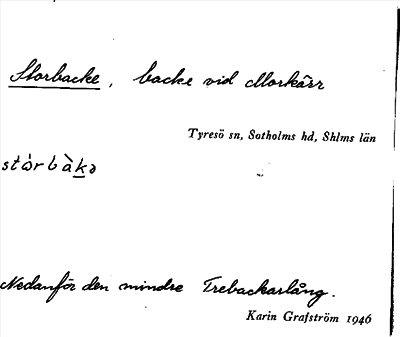 Storbacke, backe vid Morkärr
Tyresö sn, Sotholms hd, Shlms län
stὼrbàkə
Nedanför den mindre Trebackarlång.
Karin Grafström 1946